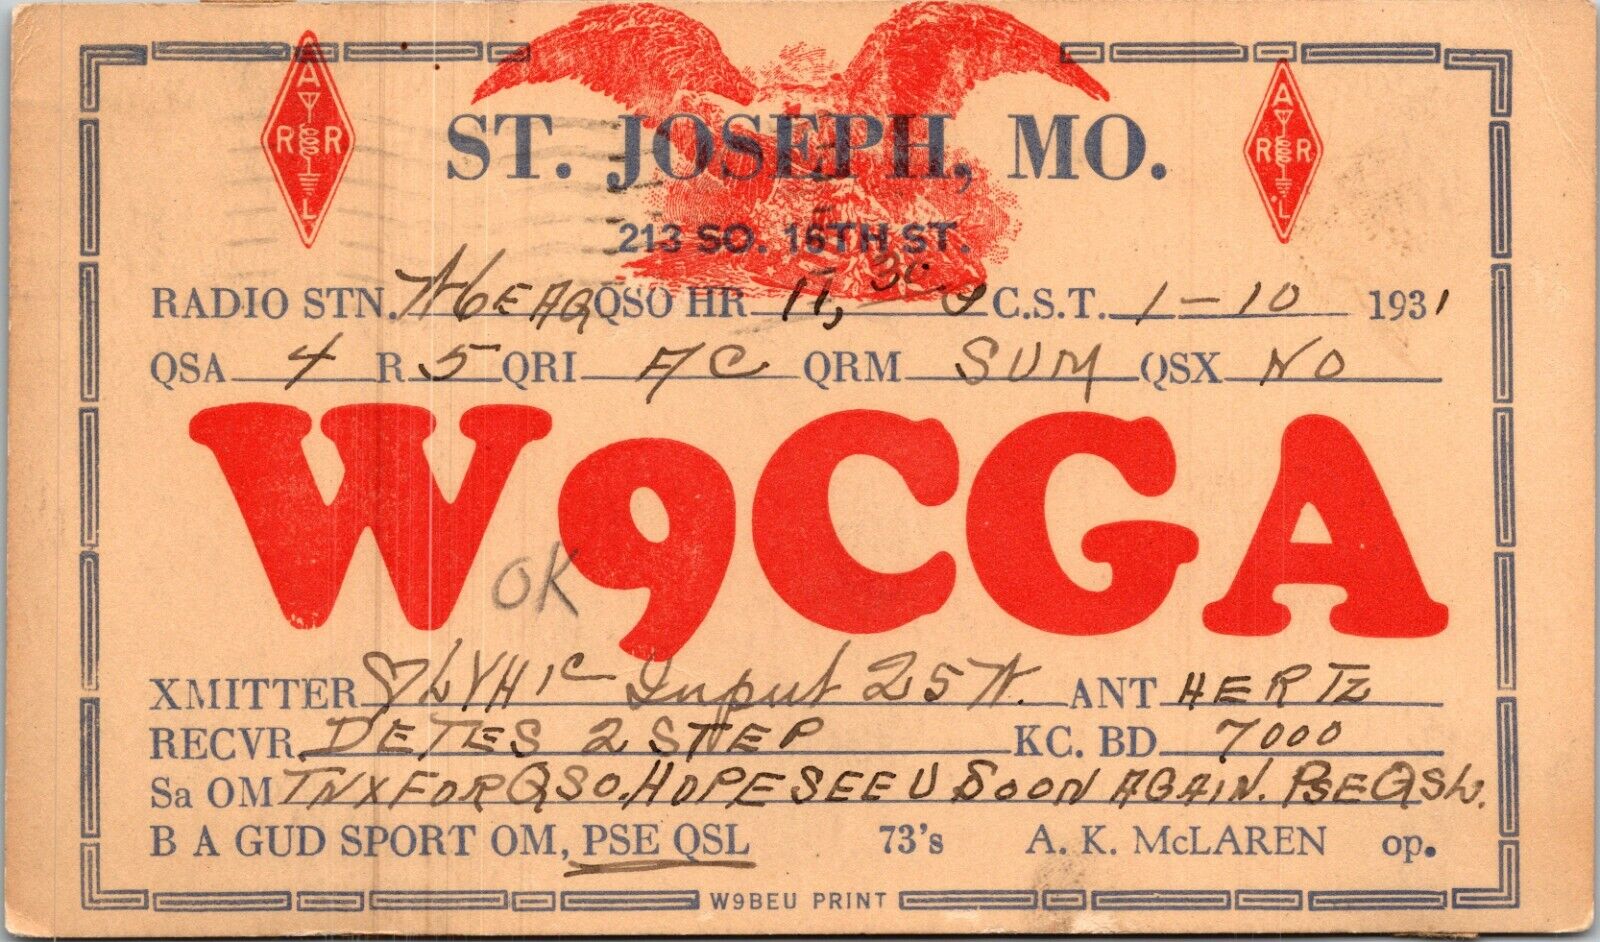 A R R L
A R R L
ST. JOSEPH, MO.
213 SO. 15TH ST.
RADIO STN. W6EAQ QSO HR 11,30 C.S.T. 1-10 1931
QSA 4 R 5 QRI A/C QRM SUM QSX NO
W9CGA
OK
XMITTER Input 25 W. ANT HERTZ
RECVR. DETES 2 STEP KC. BD 7000
Sa OM TNX FOR QSO. HOPE SEE U SOON AGAIN. PSE QSL.
B A GUD SPORT OM, PSE QSL 73's A. K. McLAREN op.
W9BEU PRINT